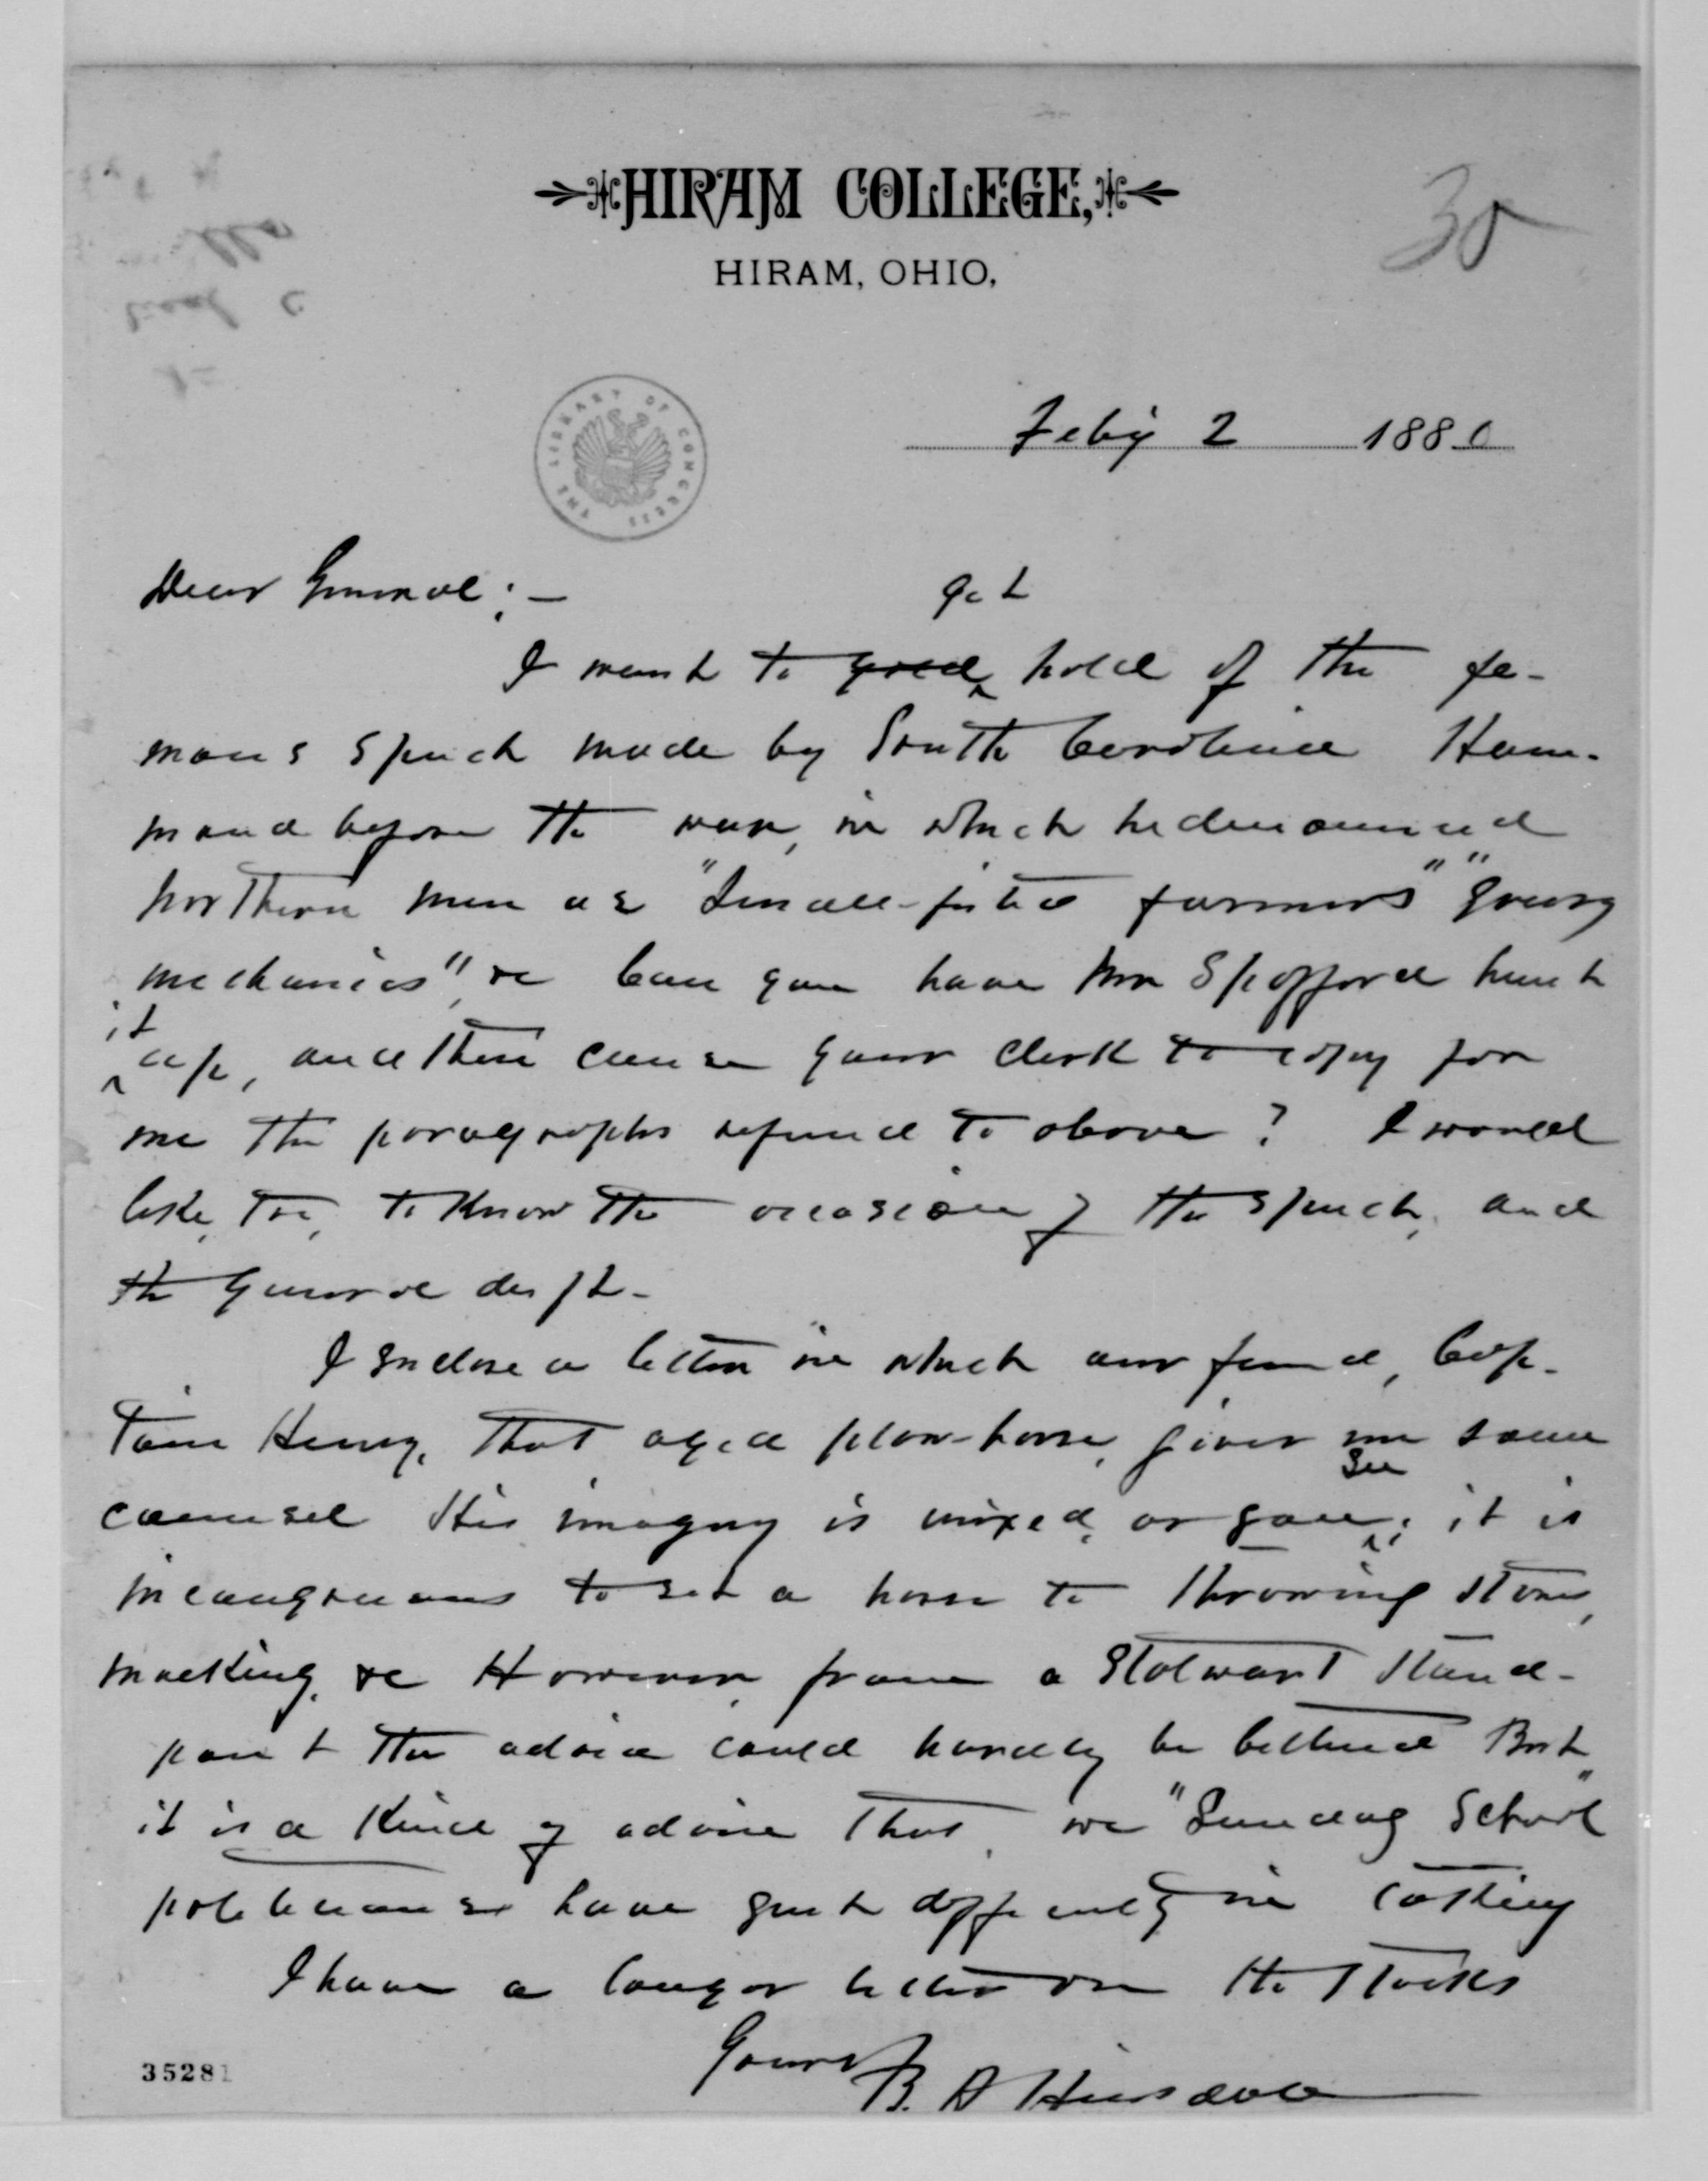 HIRAM COLLEGE,
HIRAM, OHIO,
30
THE LIBRARY OF CONGRESS
Feb'y 2 1880
Dear General:—
get
I want to hold of the fa-
mous speech made by South Carolina Ham-
mond before the war, in which he denounced
northern men as "Small-fisted farmers" "greasy
mechanics", &c Can you have Mr Spofford hunt
it
up, and then cause your clerk to copy for
me the paragraphs referred to above? I would
like, too, to know the occasion of the speech, and
the general drift.
I enclose a letter in which our friend, Cap-
tain Henry, that aged plow-horse, gives me some
counsel His imagery is mixed, as you see; it is
incongruous to set a horse to throwing stones,
mocking, &c However, from a Stalwart stand-
point the advice could hardly be bettered But
it is a kind of advice that we "Sunday School"
politicians have great difficulty in taking
I have a longer letter on the stocks
Yours
B. A Hinsdale
35281